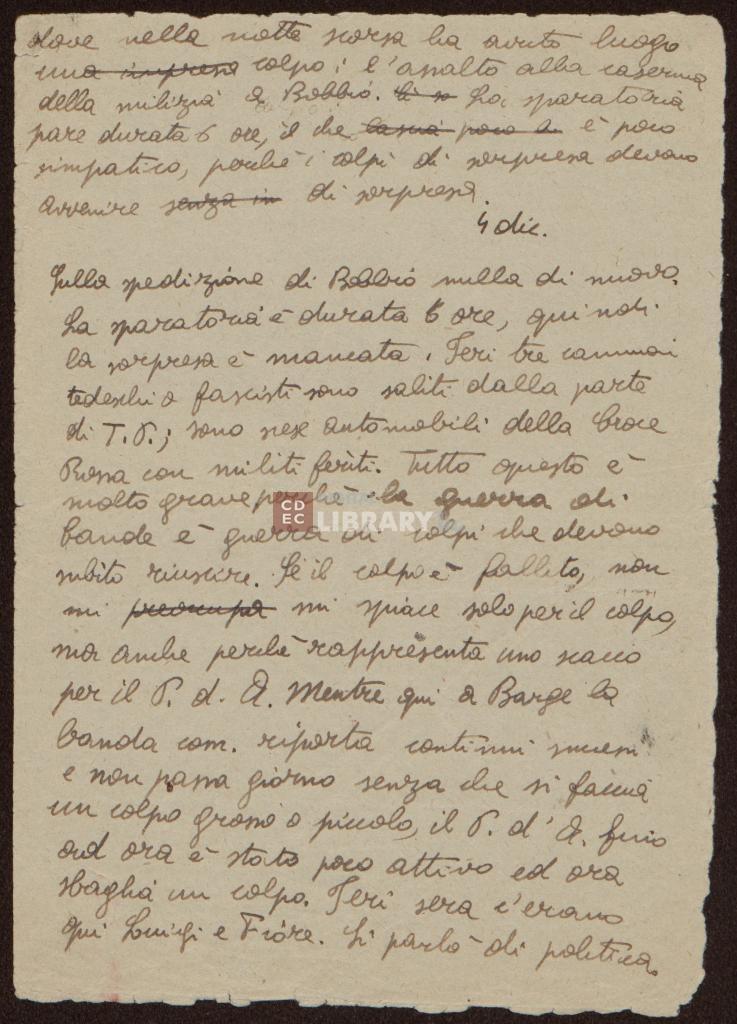 dove nella notte scorsa ha avuto luogo
una impresa colpo: l'assalto alla caserma
della milizia a Bobbio. La sparatoria
pare durata 6 ore, il che lascia poco è poco
simpatico, perchè i colpi di sorpresa devono
avvenire senza in di sorpresa.
4 dic.
Sulla spedizione di Bobbio nulla di nuovo.
La sparatoria è durata 6 ore, quindi
la sorpresa è mancata. Ieri tre cammai
tedeschi o fascisti sono saliti dalla parte
di T.P.; sono scese automobili della Croce
Rossa con militi feriti. Tutto questo è
molto grave perchè la guerra di
bande è guerra di colpi che devono
subito riuscire. Se il colpo è fallito, non
mi preoccupa mi spiace solo per il colpo,
ma anche perchè rappresenta uno scacco
per il P. d. A. Mentre qui a Barge la
banda com. riporta continui successi
e non passa giorno senza che si faccia
un colpo grosso o piccolo, il P. d'A. fino
ad ora è stato poco attivo ed ora
sbaglia un colpo. Ieri sera c'erano
qui Luigi e Fiore. Si parlò di politica.
CDEC LIBRARY